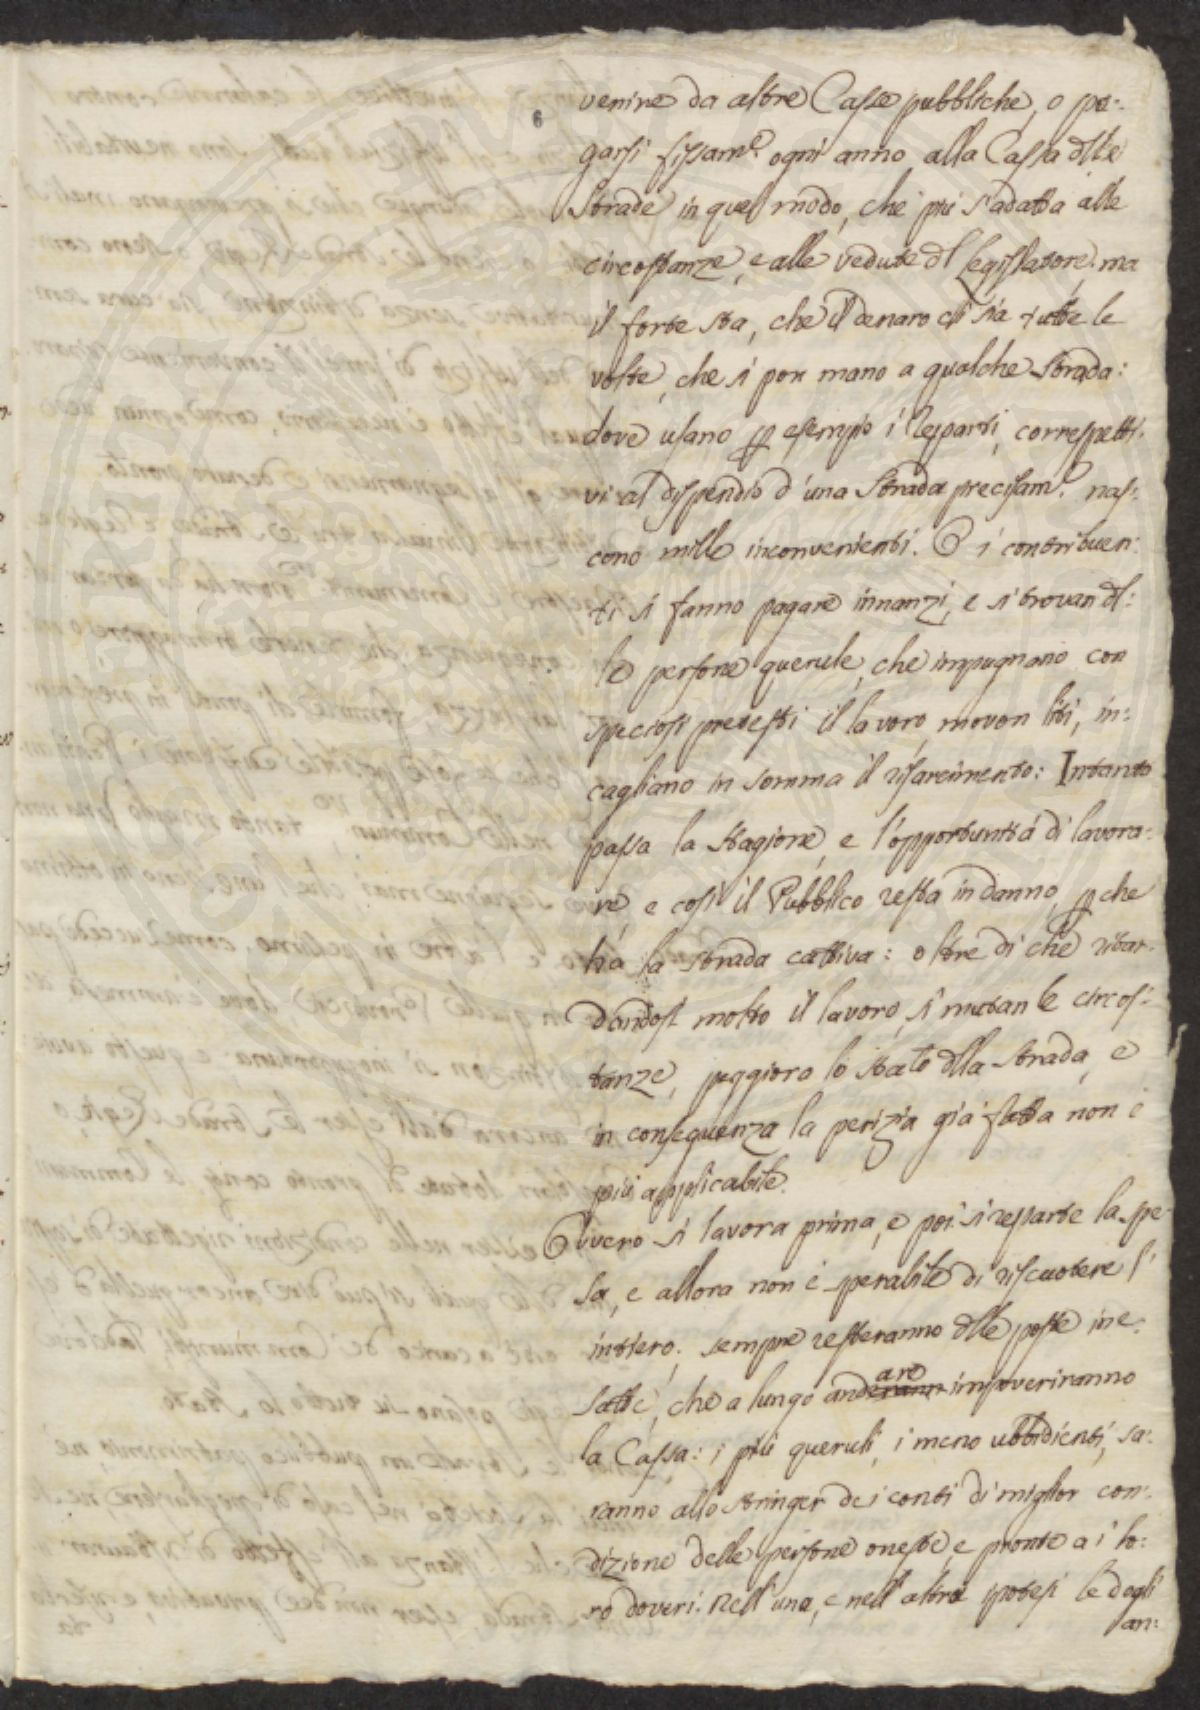 6
venire da altre Casse pubbliche, o pa:
garsi fissam.e ogni anno alla Cassa dlle
Strade in quel modo, che piu s'adatta alle
circostanze, e alle vedute dl Legislatore. ma
il forte sta, che il denaro ci sia tutte le
volte, che si pon mano a qualche Strada:
dove usano p esempio i Reparti, correspetti:
vi al dispendio d'una Strada precisam.e nas:
cono mille inconvenienti. O i contribuen:
ti si fanno pagare innanzi, e si trovan dl:
le persone querule, che impugnano con
speciosi pretesti il lavoro, movon liti, in:
cagliano in somma il risarcimento: Intanto
passa la stagione, e l'opportunità di lavora:
re e così il Pubblico resta in danno, pche
ha la strada cattiva: oltre di che ritar:
dandosi molto il lavoro, si mutan le circos:
tanze, peggiora lo stato dlla strada, e
in conseguenza la perizia già fatta non è
più applicabile.
Ovvero si lavora prima, e poi si reparte la spe
sa, e allora non è sperabile di riscuotere l'
intiero. sempre resteranno dlle poste ine:
satte, che a lungo andare impoveriranno
la Cassa: i più queruli, i meno ubbidienti, sa:
ranno allo stringer dei conti di miglior con:
dizione delle persone oneste, e pronte a i lo:
ro doveri. Nell'una, e nell'altra ipotesi le dogli
an: